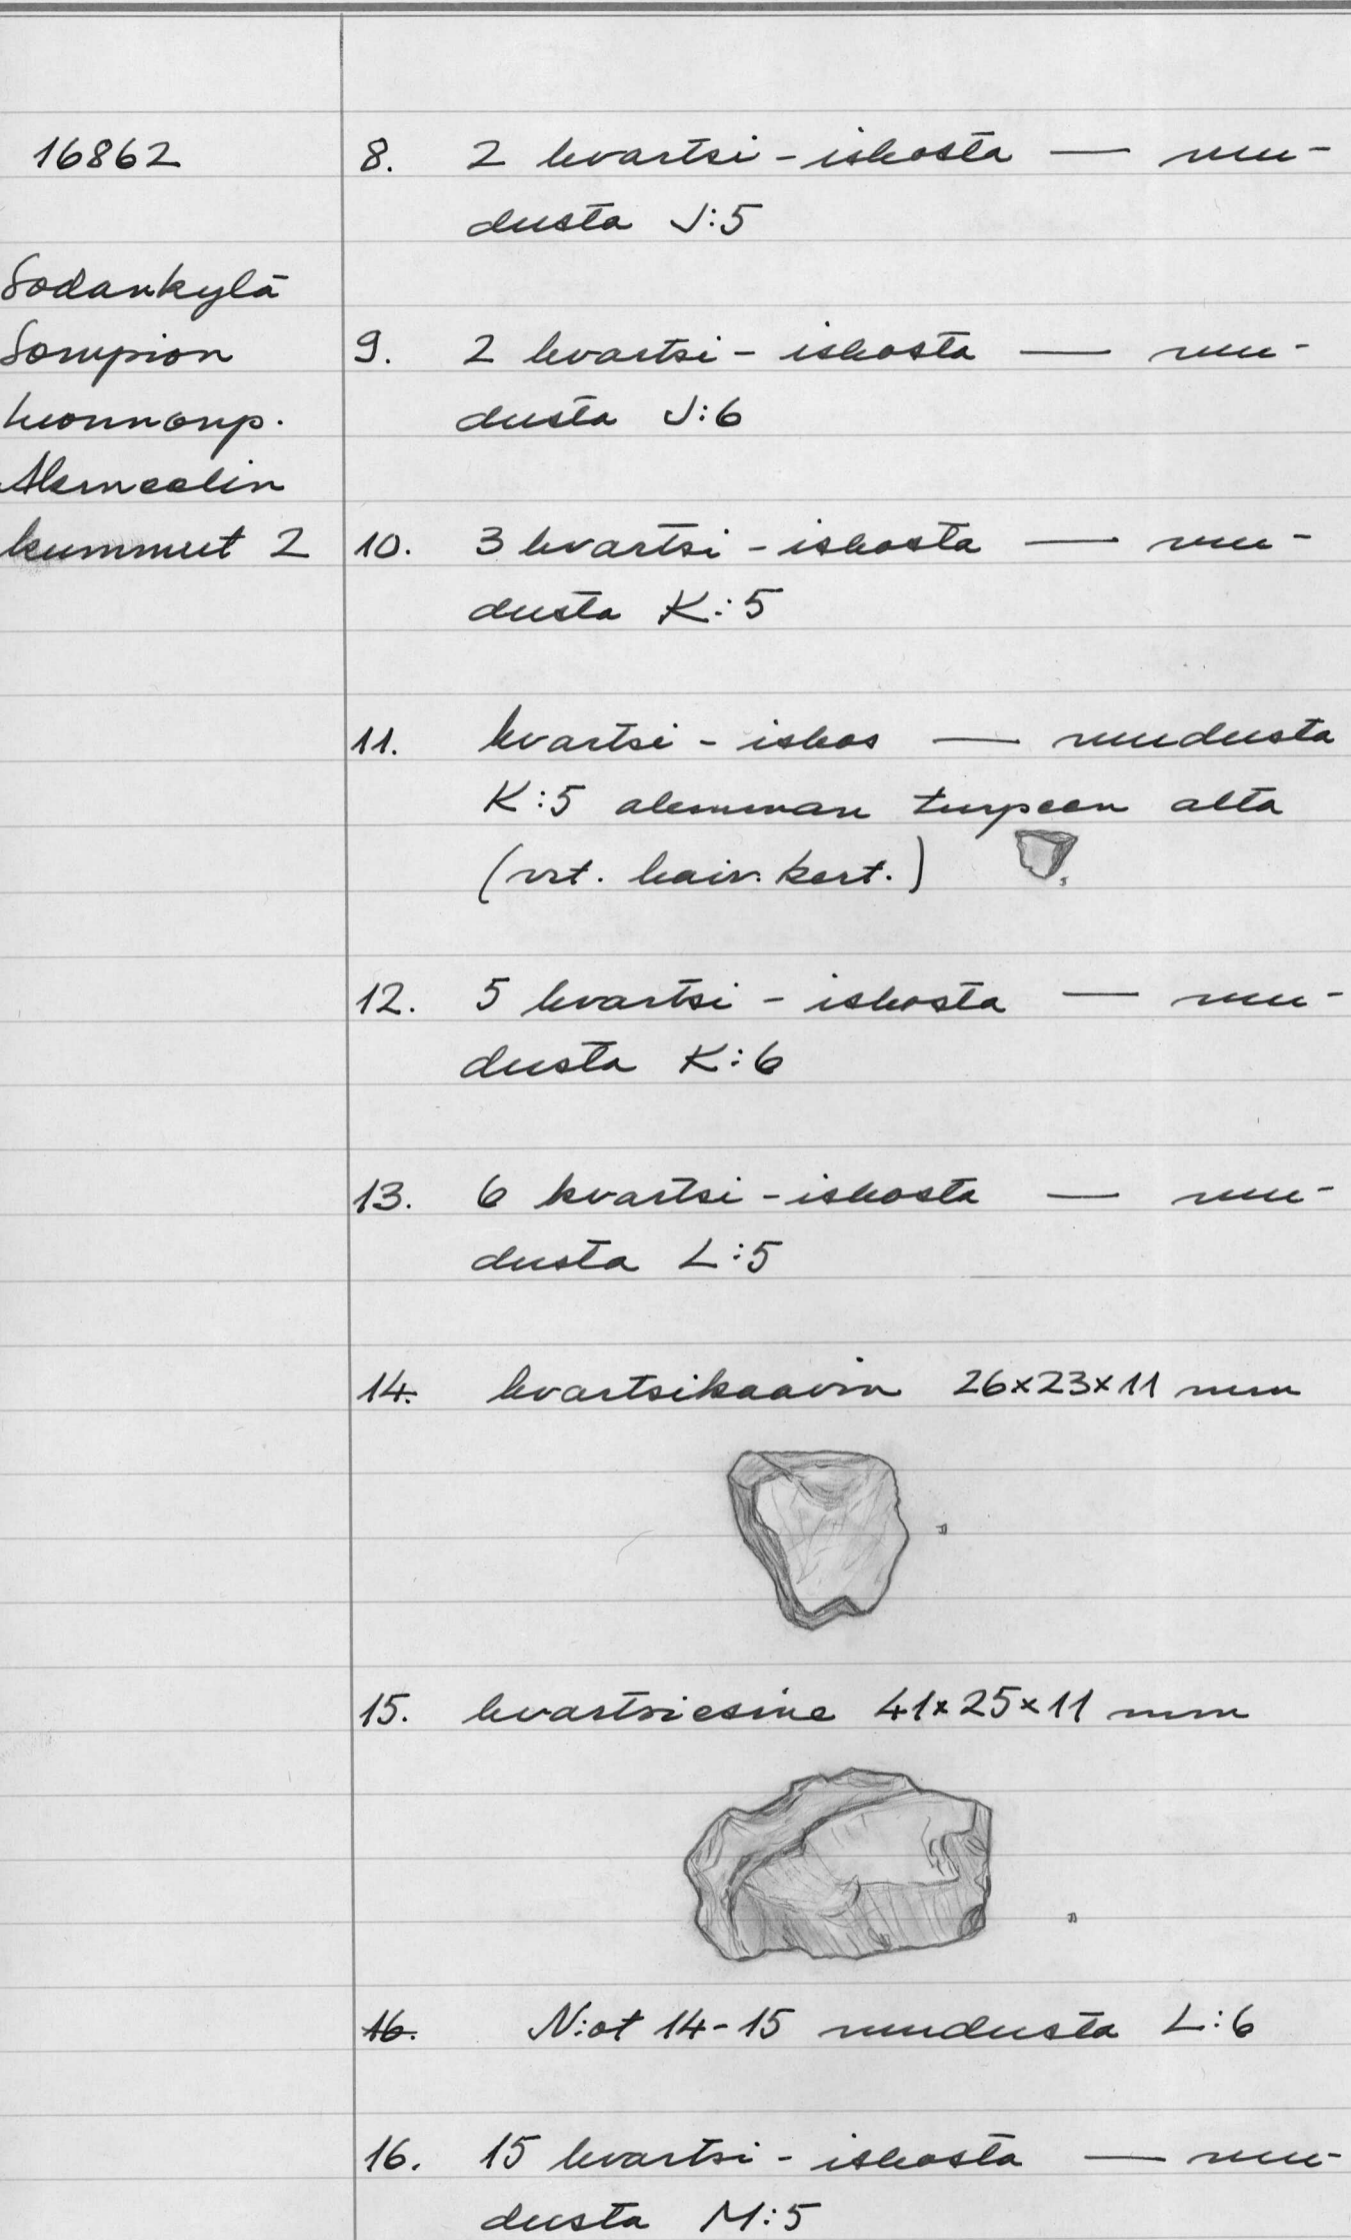 16862
Sodankylä
Sompion
luonnonp.
kummut 2
8. 2 kvartsi-iskosta — ruu-
dusta J:5
9. 2 kvartsi-iskosta — ruu-
dusta J:6
10. 3 kvartsi-iskosta — ruu-
dusta K:5
11. kvartsi-iskos — ruudusta
K:5 alemman turpeen alta
(vrt. kaiv.kert.)
12. 5 kvartsi-iskosta — ruu-
dusta K:6
13. 6 kvartsi-iskosta — ruu-
dusta L:5
14. kvartsikaavin 26x23x11 mm
15. kvartsiesine 41x25x11 mm
16. N:ot 14-15 ruudusta L:6
16. 15 kvartsi-iskosta — ruu-
dusta M:5